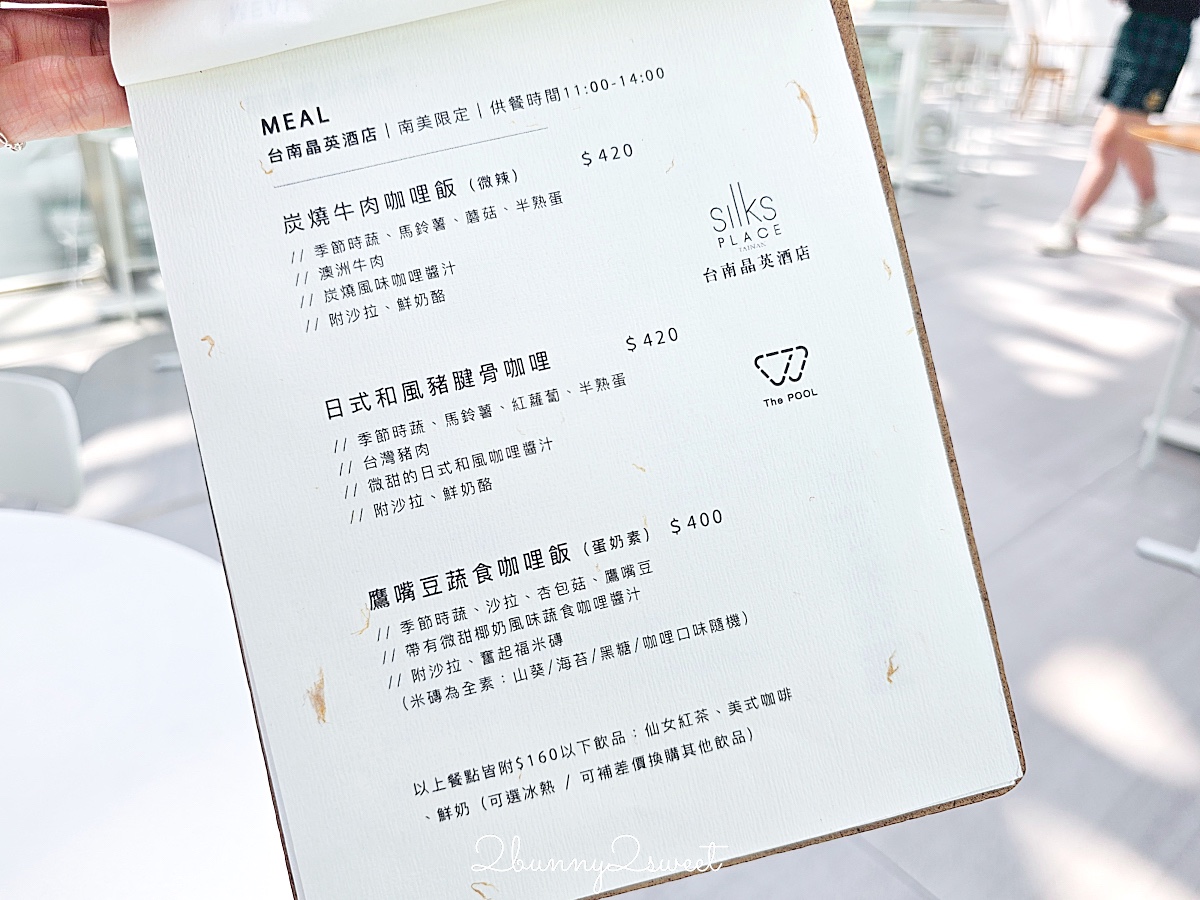 MEAL
台南晶英酒店 | 南美限定 | 供餐時間11:00-14:00
炭燒牛肉咖哩飯（微辣） $420
// 季節時蔬、馬鈴薯、蘑菇、半熟蛋
// 澳洲牛肉
// 炭燒風味咖哩醬汁
// 附沙拉、鮮奶酪
silks
PLACE
TAINAN
台南晶英酒店
日式和風豬腱骨咖哩 $420
// 季節時蔬、馬鈴薯、紅蘿蔔、半熟蛋
// 台灣豬肉
// 微甜的日式和風咖哩醬汁
// 附沙拉、鮮奶酪
The POOL
鷹嘴豆蔬食咖哩飯（蛋奶素） $400
// 季節時蔬、沙拉、杏包菇、鷹嘴豆
// 帶有微甜椰奶風味蔬食咖哩醬汁
// 附沙拉、奮起福米磚
（米磚為全素：山葵/海苔/黑糖/咖哩口味隨機）
以上餐點皆附$160以下飲品：仙女紅茶、美式咖啡
、鮮奶（可選冰熱 / 可補差價換購其他飲品）
2bunny2sweet